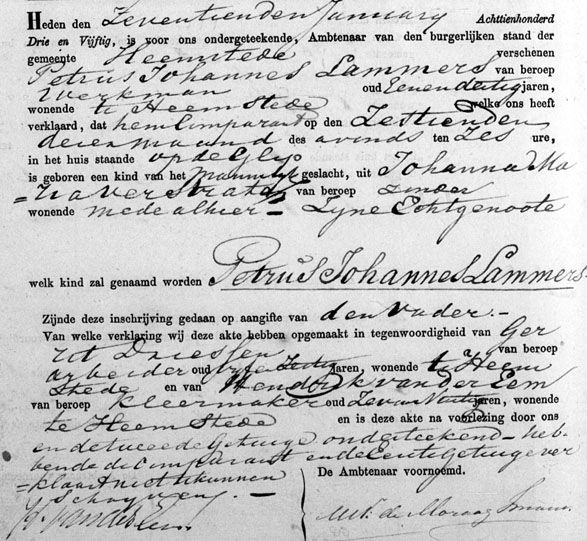 Heden den Zeventienden January Achttienhonderd
Drie en Vijftig, is voor ons ondergeteekende, Ambtenaar van den burgerlijken stand der
gemeente Heemstede verschenen
Petrus Johannes Lammers van beroep
Werkman oud Eenendertig jaren,
wonende te Heemstede welke ons heeft
verklaard, dat hem Comparant op den Zestienden
dezer maand des avonds ten Zes ure,
in het huis staande op de Glip
is geboren een kind van het mannelyk geslacht, uit Johanna Ma
=ria Verstraten van beroep zonder
wonende mede alhier – Zyne Echtgenoote
welk kind zal genaamd worden Petrus Johannes Lammers
Zijnde deze inschrijving gedaan op aangifte van den Vader.–
Van welke verklaring wij deze akte hebben opgemaakt in tegenwoordigheid van Ger
rit Driessen van beroep
arbeider oud jaren, wonende te Heem
stede en van Hendrik van der Eem
van beroep Kleermaker oud jaren, wonende
te Heemstede en is deze akte na voorlezing door ons
en de tweede Getuige onderteekend – heb-
bende de Comparant en de eerste Getuige ver
=klaart niet te kunnen
Schryven.–
De Ambtenaar voornoemd.
H. van der Eem